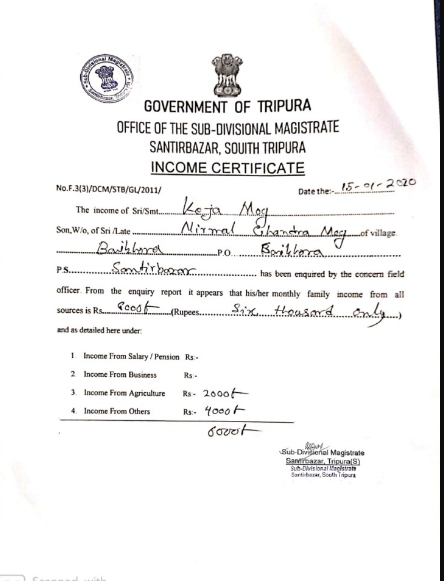 GOVERNMENT OF TRIPURA
OFFICE OF THE SUB-DIVISIONAL MAGISTRATE
SANTIRBAZAR, SOUITH TRIPURA
INCOME CERTIFICATE
No.F.3(3)/DCM/STB/GL/2011/ Date the:- 15-01-2020
The income of Sri/Smt. Keja Mog
Son,W/o, of Sri /Late Nirmal Chandra Mog of village
Baikhora P.O Baikhora
P.S. Santirbazar has been enquired by the concern field
officer. From the enquiry report it appears that his/her monthly family income from all
sources is Rs. 6000/- (Rupees Six thousand only )
and as detailed here under:
1 Income From Salary / Pension Rs:-
2 Income From Business Rs -
3 Income From Agriculture Rs - 2000/-
4 Income From Others Rs:- 4000/-
6000/-
Sub-Divisional Magistrate
Santirbazar, Tripura(S)
Sub-Divisional Magistrate
Santirbazar, South Tripura
Scanned with